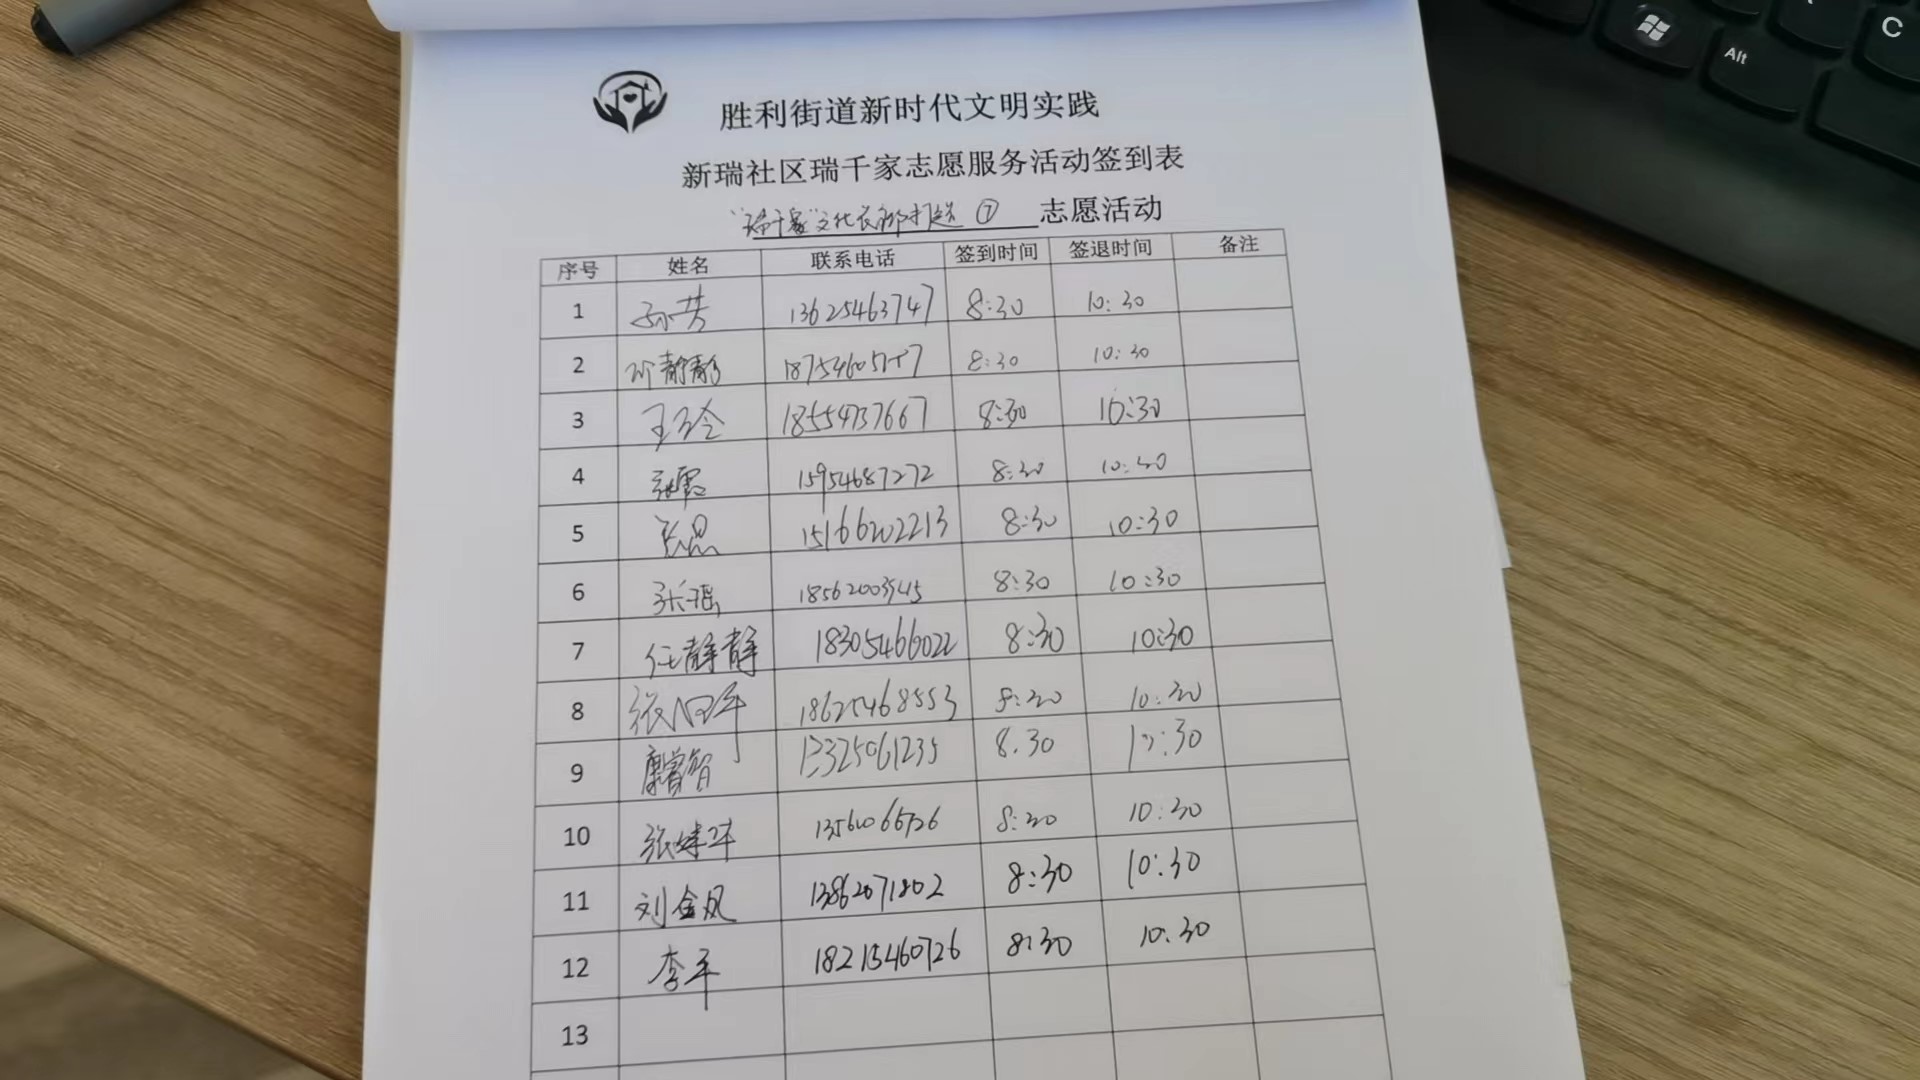 胜利街道新时代文明实践
新瑞社区瑞千家志愿服务活动签到表
"瑞千家"文化长廊打造 ⑦ 志愿活动
序号 姓名 联系电话 签到时间 签退时间 备注
1 孙芸 13625463747 8:30 10:30
2 静静 8:30 10:30
3 王 18554737667 8:30 10:30
4 张霞 15954687272 8:30 10:30
5 15166202213 8:30 10:30
6 张瑶 8:30 10:30
7 任静静 18305466022 8:30 10:30
8 张 18625468553 8:30 10:30
9 8.30 10:30
10 张 8:30 10:30
11 刘金凤 13862071802 8:30 10:30
12 李平 18215460726 8:30 10:30
13
Alt
C